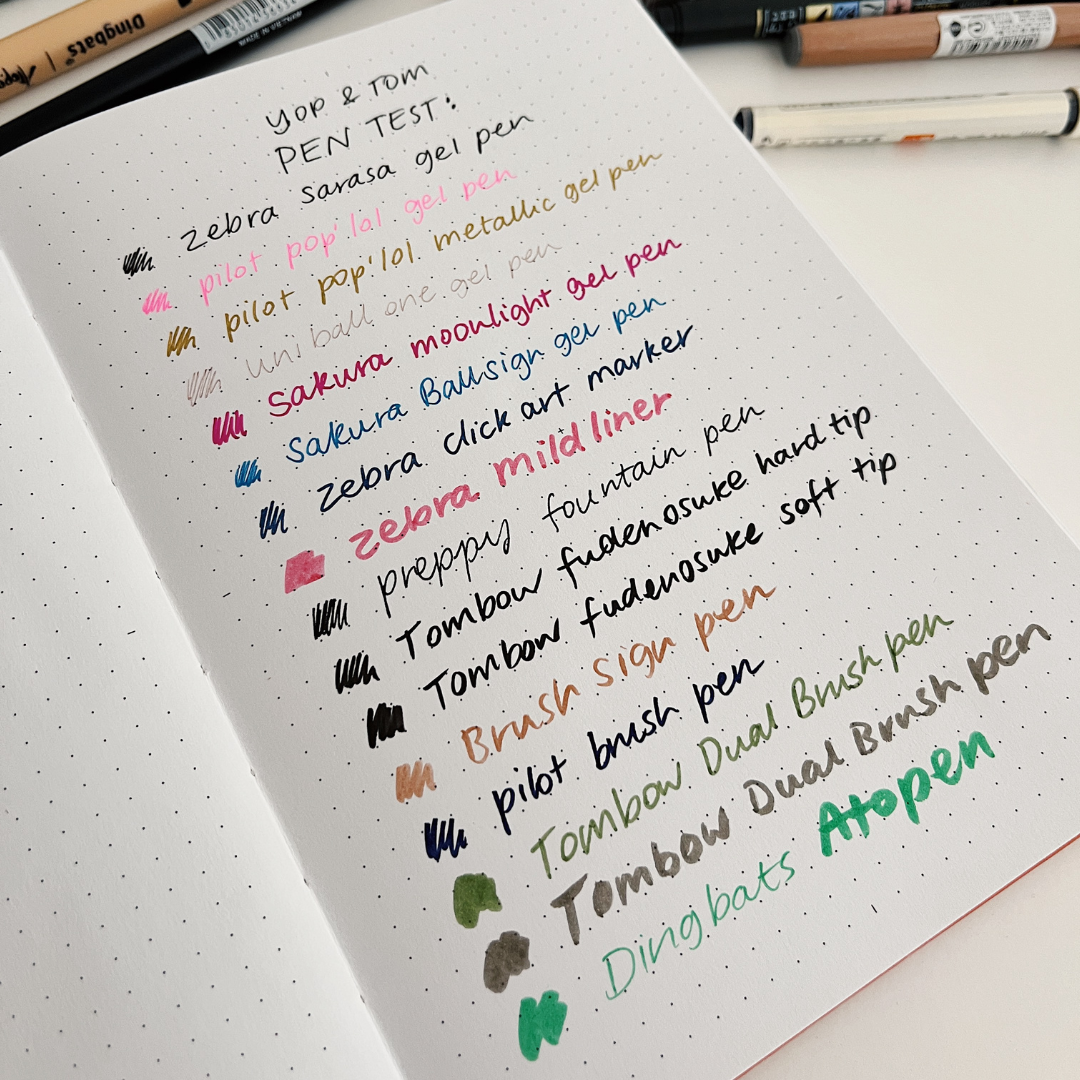 Dingbats®
Atopen
YOP & TOM
PEN TEST:
zebra sarasa gel pen
pilot pop'lol gel pen
pilot pop'lol metallic gel pen
uni ball one gel pen
Sakura moonlight gel pen
Sakura Ballsign gel pen
zebra click art marker
zebra mildliner
preppy fountain pen
Tombow fudenosuke hard tip
Tombow fudenosuke soft tip
Brush sign pen
pilot brush pen
Tombow Dual Brush pen
Tombow Dual Brush pen
Dingbats Atopen